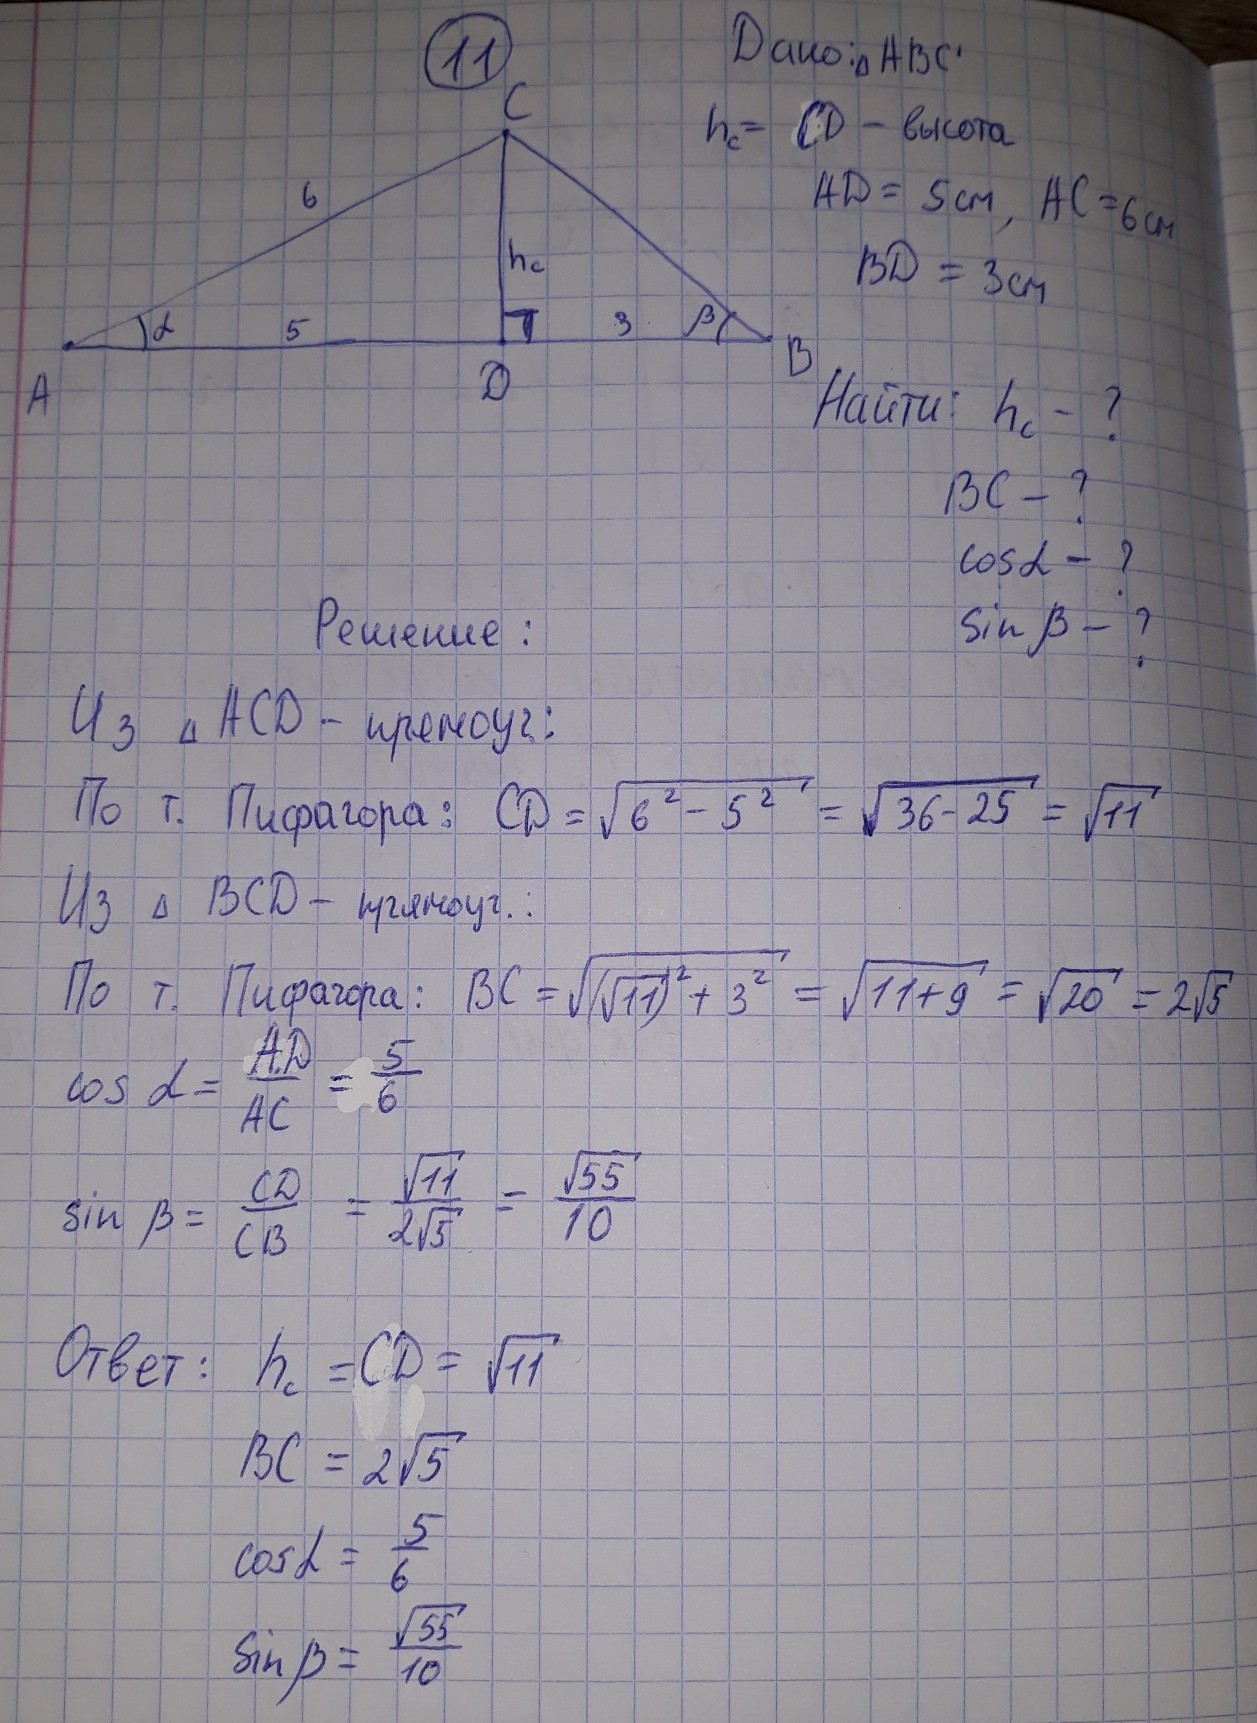 11
Дано: △ABC
C
h_c = CD – высота
6
AD = 5см, AC = 6см
h_c
BD = 3см
α 5 3 β
A D B
Найти: h_c – ?
BC – ?
cosα – ?
sin β – ?
Решение:
Из △ ACD – прямоуг.:
По т. Пифагора: CD = √(6² – 5²) = √(36-25) = √11
Из △ BCD – прямоуг.:
По т. Пифагора: BC = √((√11)² + 3²) = √(11+9) = √20 = 2√5
cos α = AD/AC = 5/6
sin β = CD/CB = √11/2√5 = √55/10
Ответ: h_c = CD = √11
BC = 2√5
cosα = 5/6
sin β = √55/10